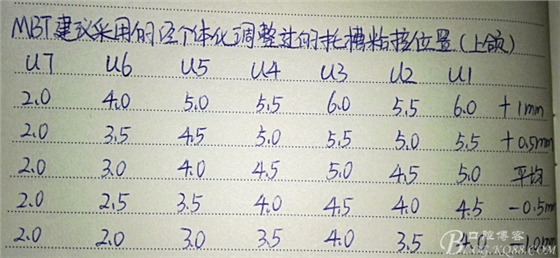 MBT建议采用的经个体化调整过的托槽粘接位置(上颌)
U7 U6 U5 U4 U3 U2 U1
2.0 4.0 5.0 5.5 6.0 5.5 6.0 +1mm
2.0 3.5 4.5 5.0 5.5 5.0 5.5 +0.5mm
2.0 3.0 4.0 4.5 5.0 4.5 5.0 平均
2.0 2.5 3.5 4.0 4.5 4.0 4.5 -0.5m
2.0 2.0 3.0 3.5 4.0 3.5 4.0 -1.0mm
口腔博客
BLOG.KQ88.COM